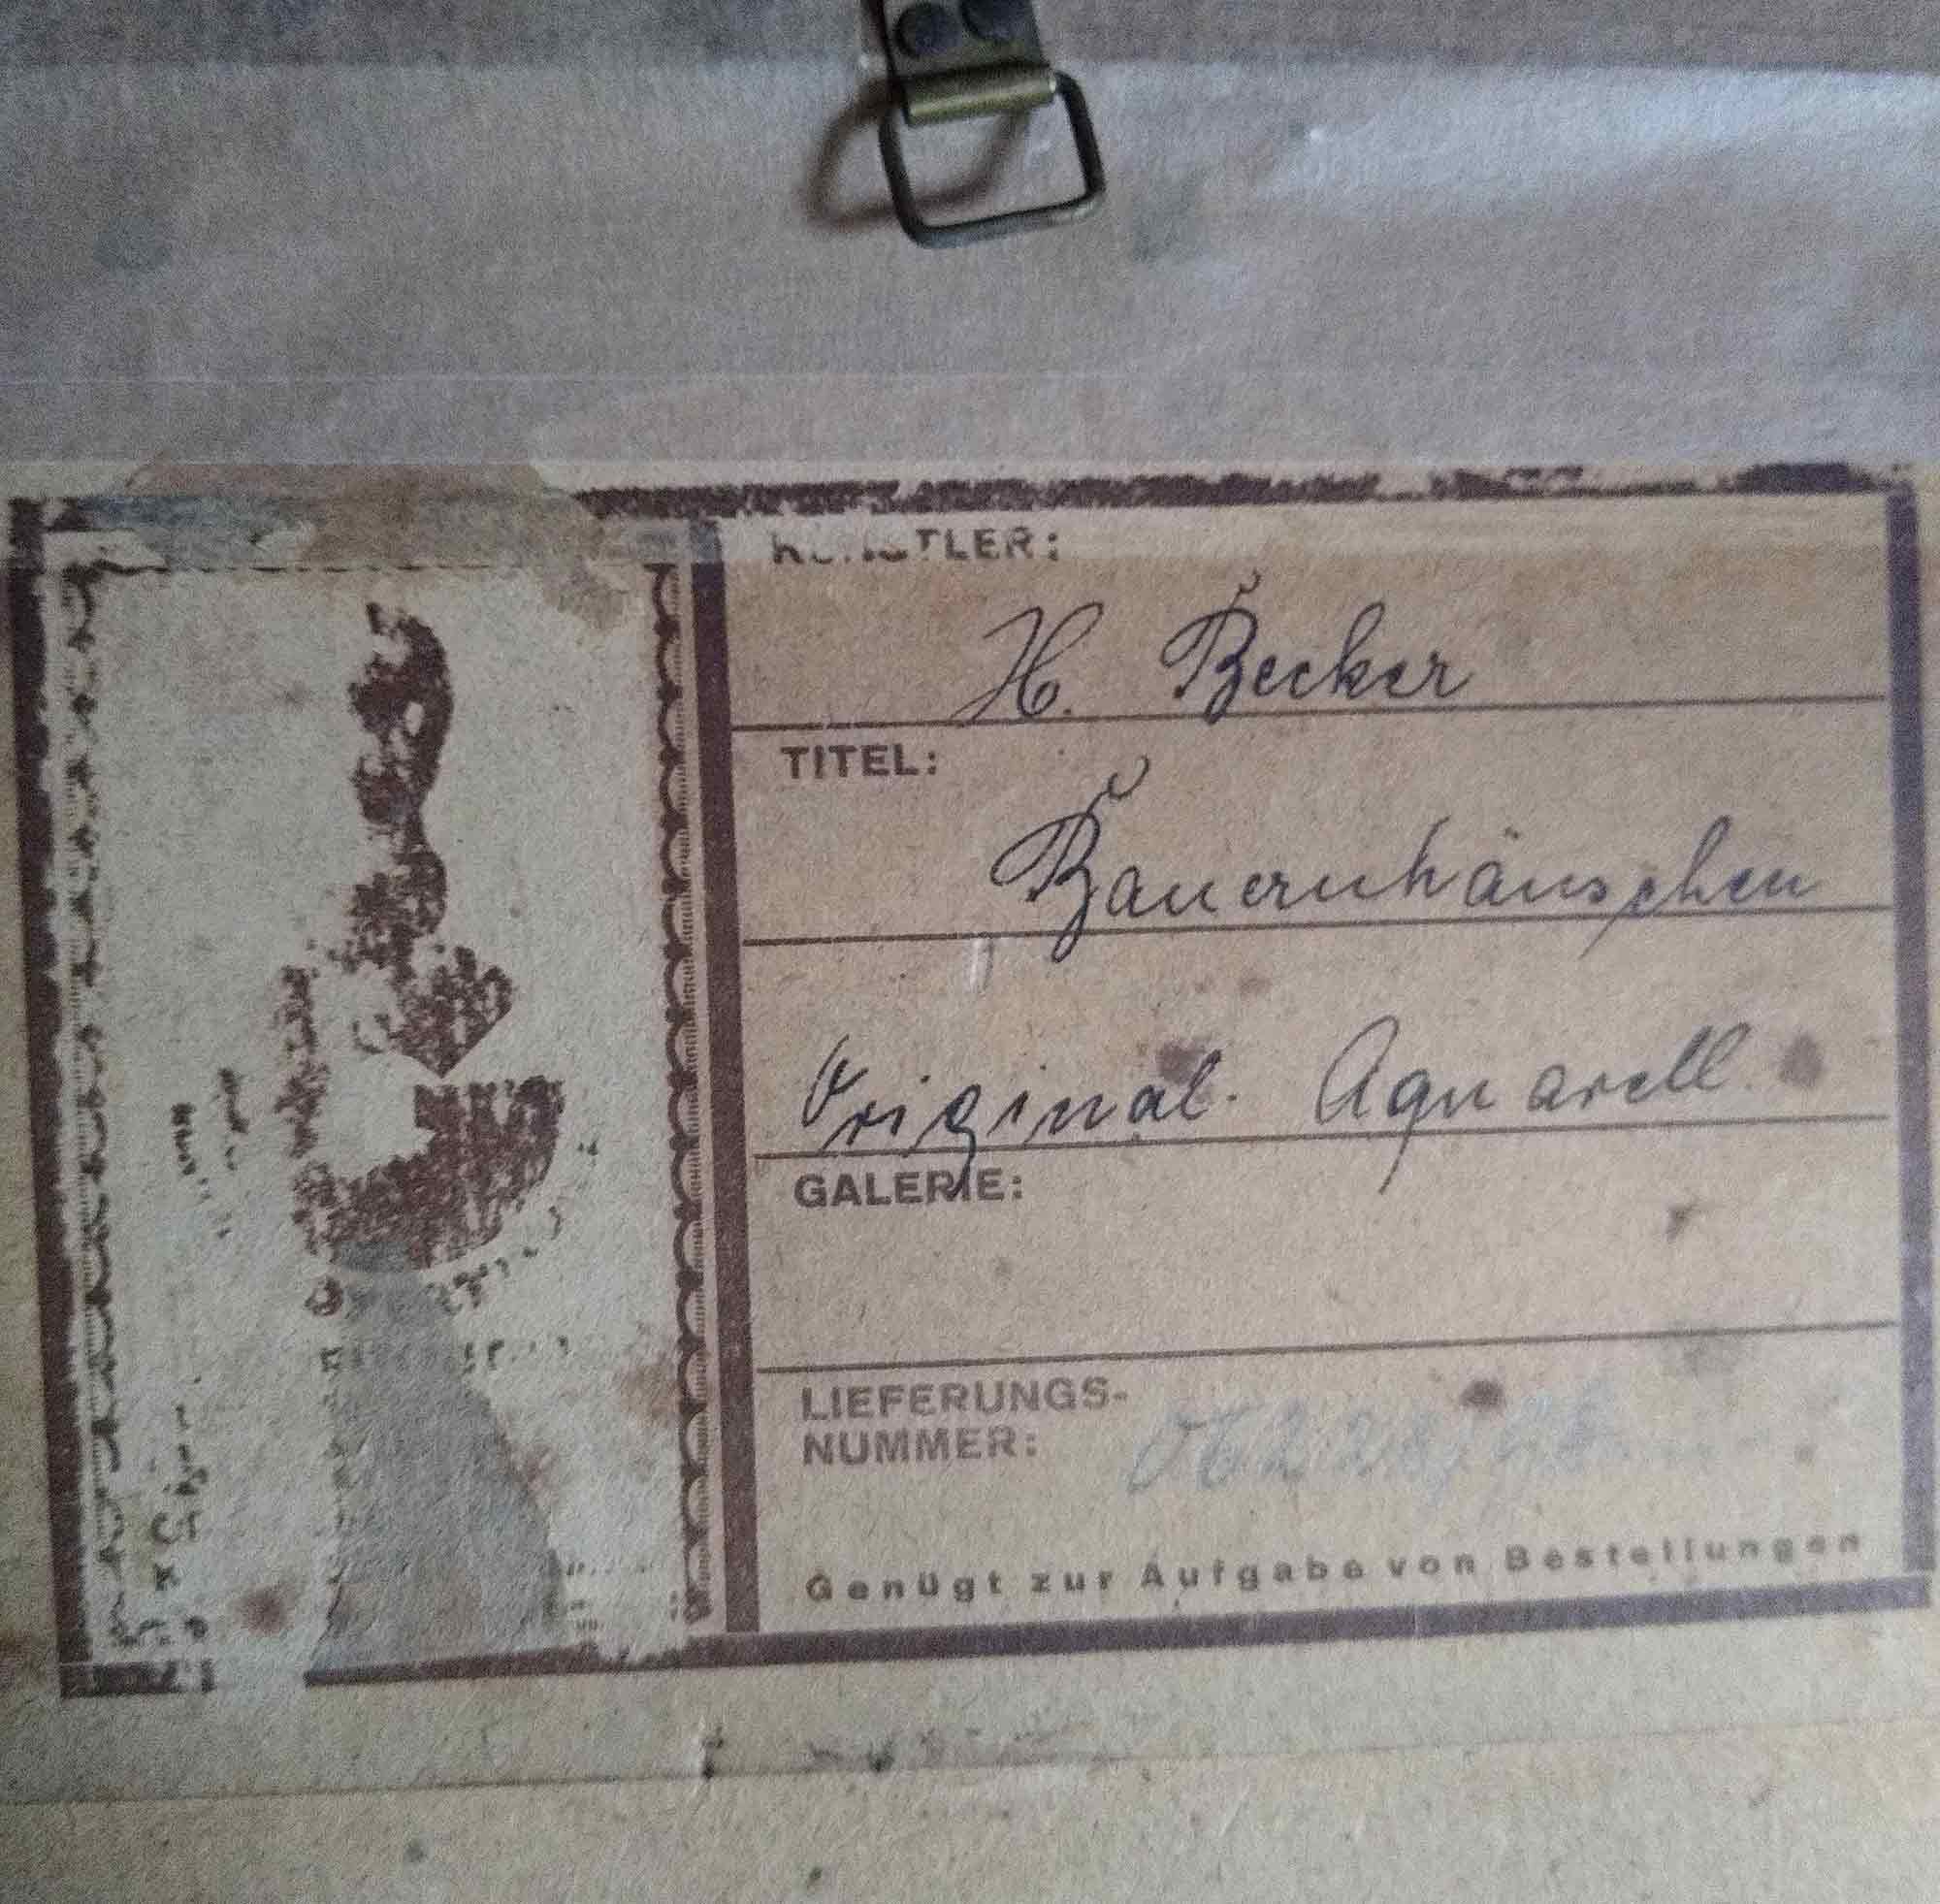 KÜNSTLER:
H. Becker
TITEL:
Bauernhäuschen
Original. Aquarell.
GALERIE:
LIEFERUNGS-
NUMMER:
Genügt zur Aufgabe von Bestellungen